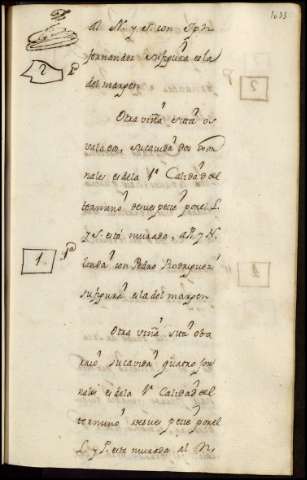 1033
Al N. y S. con Jph
fernandez su figura es la
del margen
2 2ª
Otra viña sita os
valeos, su cavida dos Jor
nales es dela 1ª Calidad del
termino desue pecie por el L.
y S. está murada, a P. y N.
linda con Pedro Rodriguez
su figura es la del margen
1 1ª
Otra viña sita oba
su cavida quatro jor
nales es dela 1ª Calidad del
termino desue pecie por el
L. y P. esta murada al N.